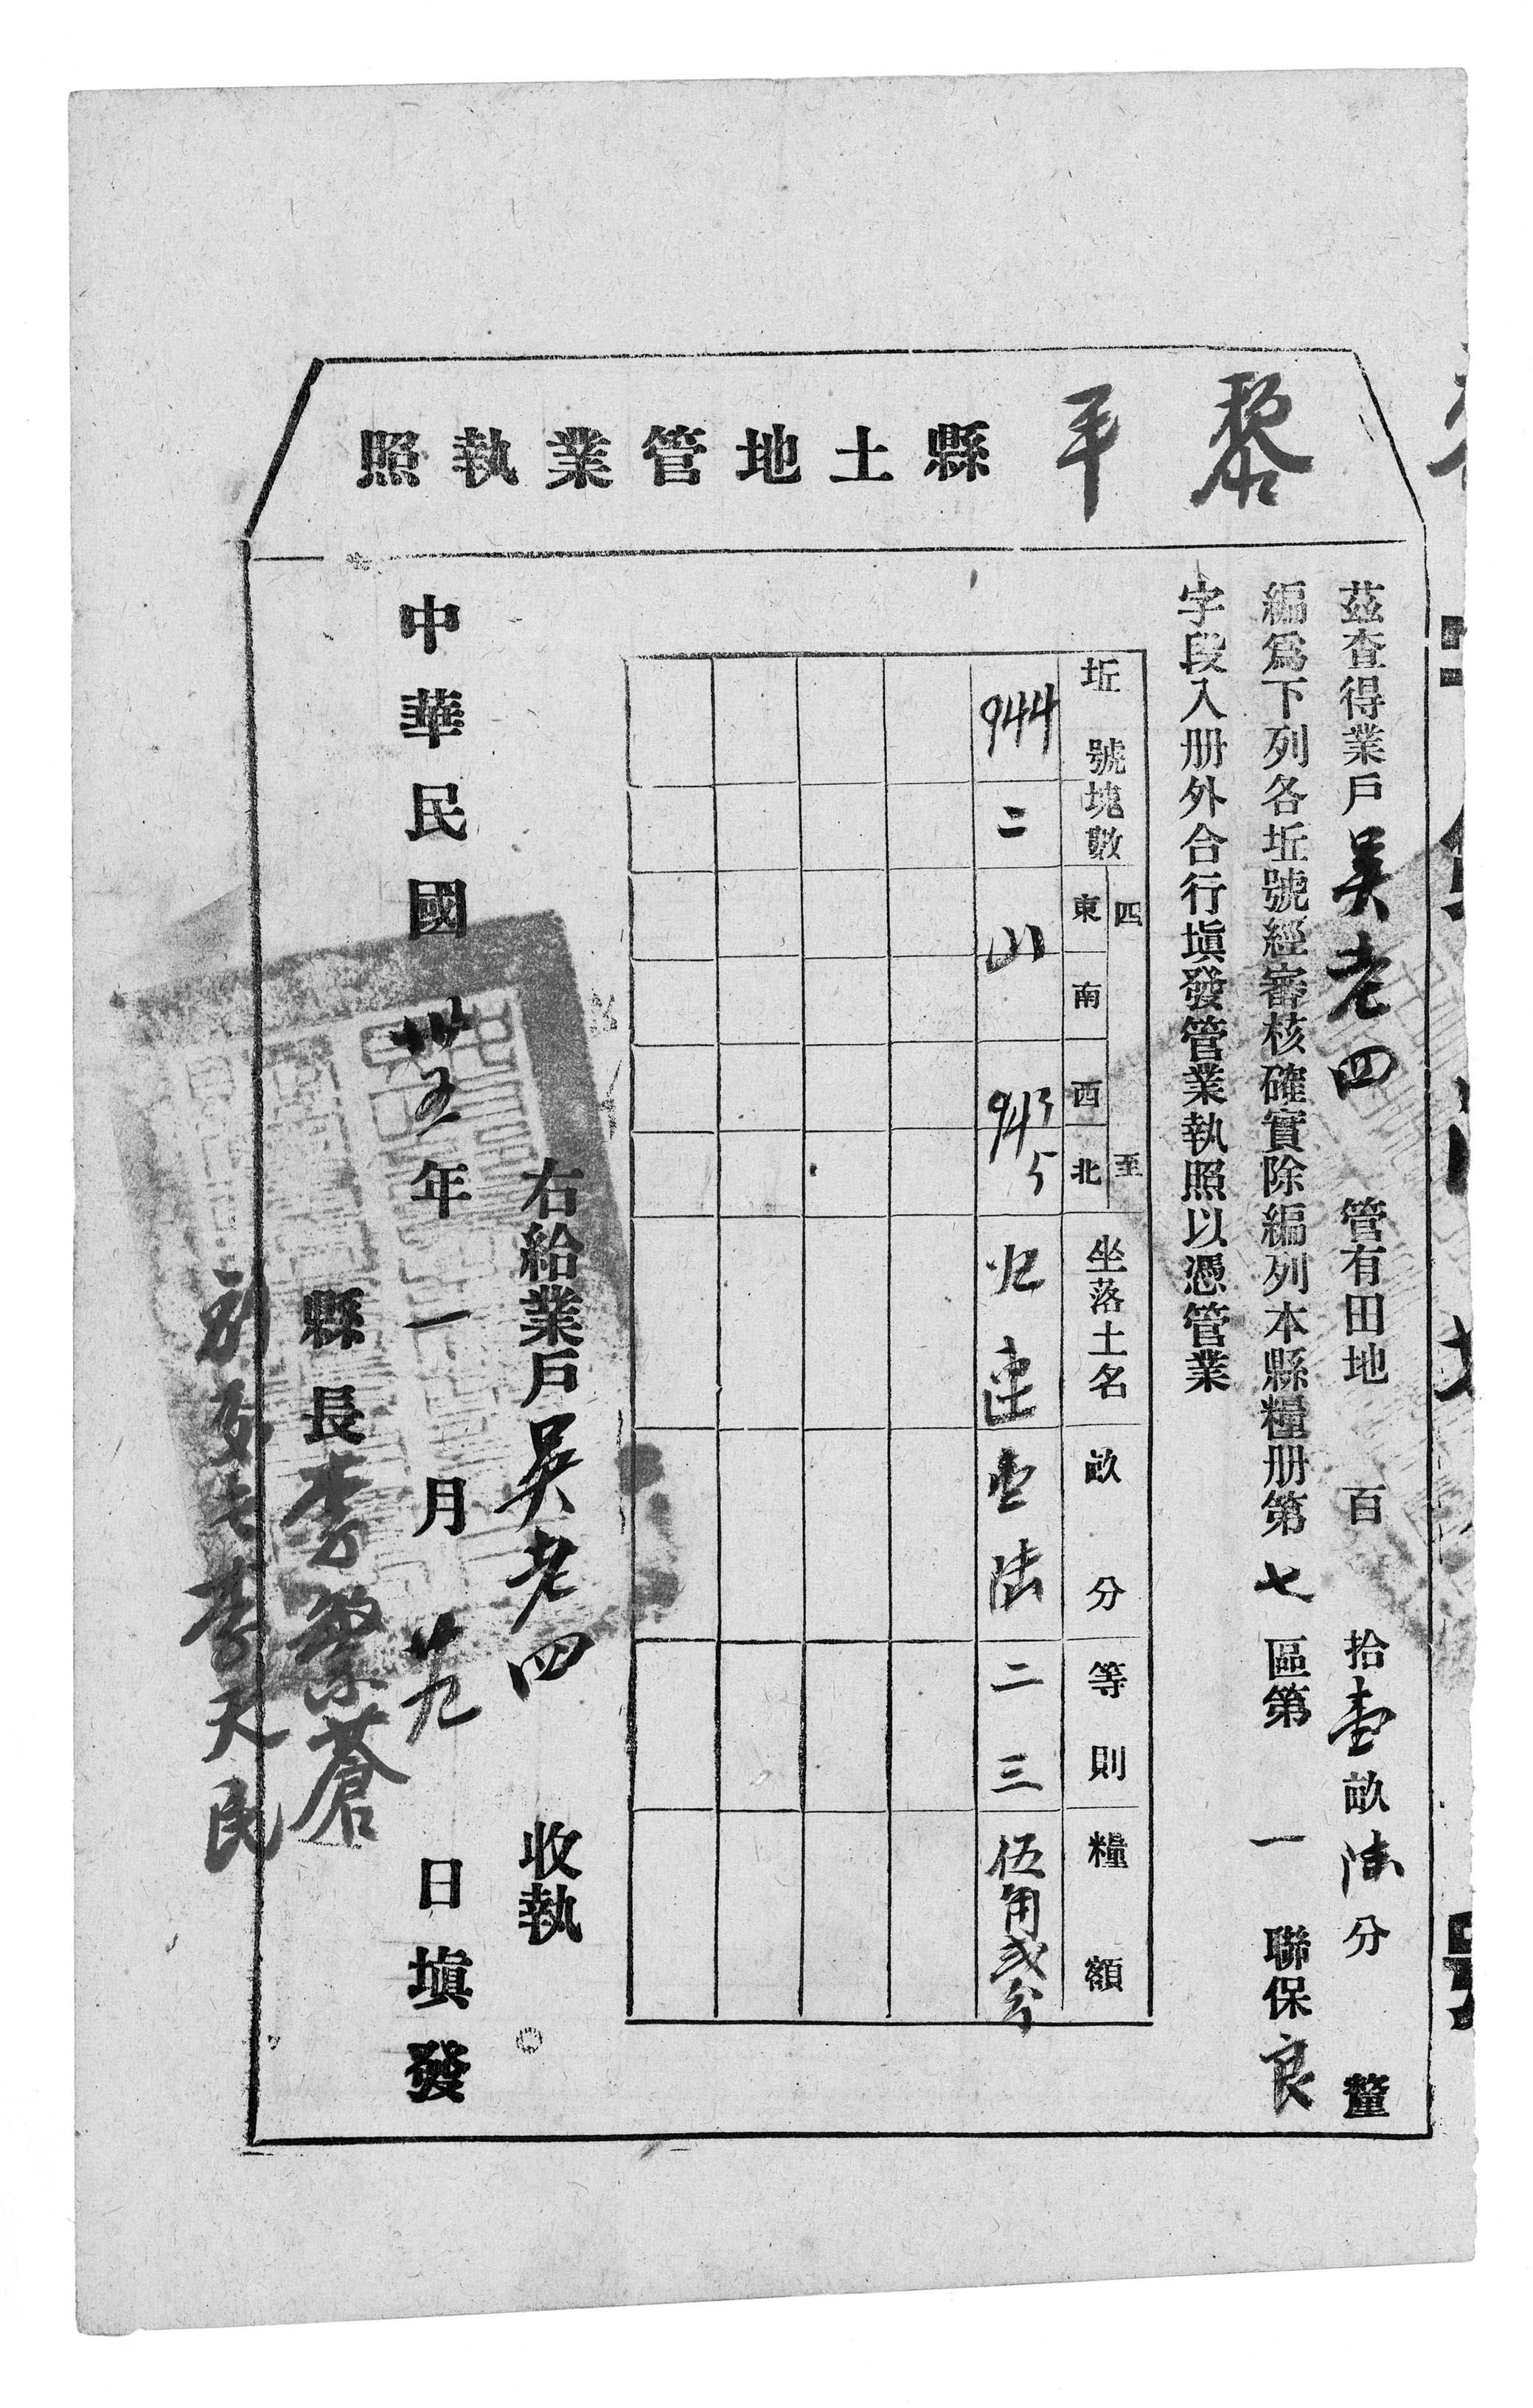 黎平縣土地管業執照
茲查得業戶吳老四管有田地百拾壹畝陸分釐
編爲下列各坵號經審核確實除編列本縣糧册第七區第一聯保良
字段入册外合行塡發管業執照以憑管業
坵號 塊數 四至 東 南 西 北 坐落土名 畝分 等則 糧額
944 二 山 943 5 壹陸 二三 伍角貳分
右給業戶吳老四收執
中華民國卅五年一月廿九日塡發
縣長李繁蒼
李天民
號